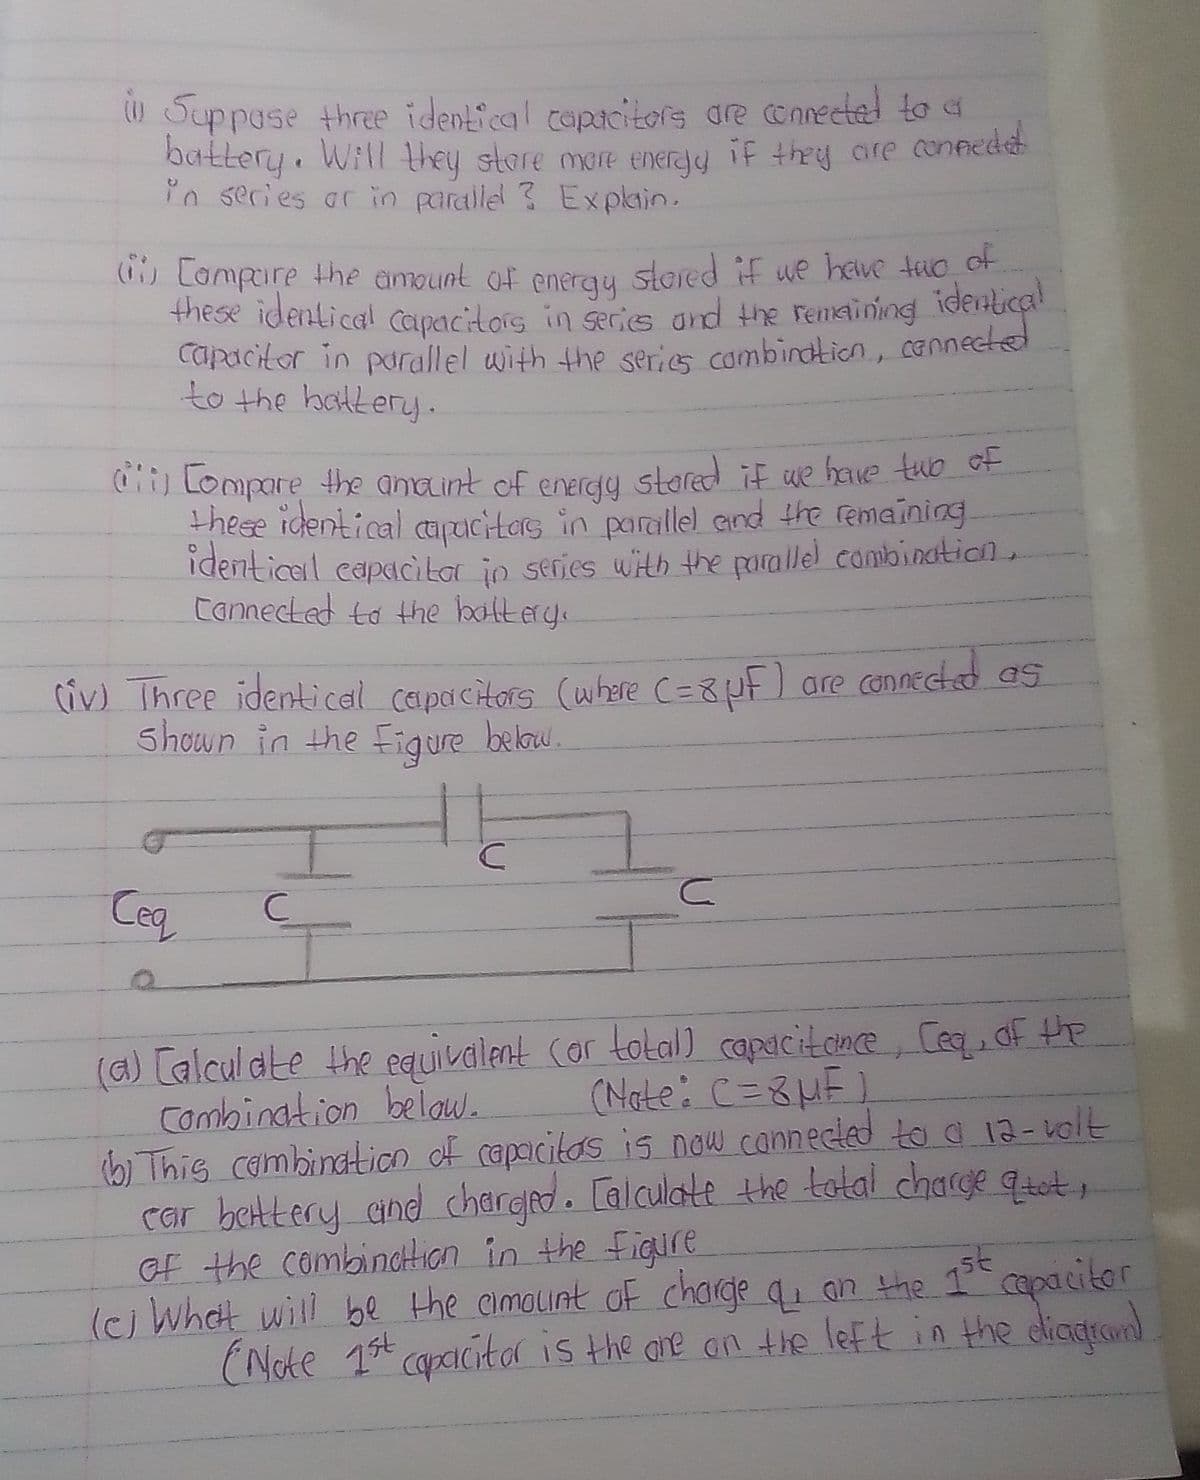 (i) Suppose three identical capacitors are connected to a
battery. Will they store more energy if they are connected
in series or in parallel? Explain.
(ii) Compare the amount of energy stored if we have two of
these identical capacitors in series and the remaining identical
capacitor in parallel with the series combination, connected
to the battery.
(iii) Compare the amount of energy stored if we have two of
these identical capacitors in parallel and the remaining
identical capacitor in series with the parallel combination,
connected to the battery.
(iv) Three identical capacitors (where C=8μF) are connected as
shown in the figure below.
C
C
Ceq C
(a) Calculate the equivalent (or total) capacitance, Ceq, of the
combination below. (Note: C=8μF)
(b) This combination of capacitos is now connected to a 12-volt
car battery and charged. Calculate the total charge qtot,
of the combination in the figure
(c) What will be the amount of charge q1 on the 1st capacitor
(Note 1st capacitor is the one on the left in the diagram)